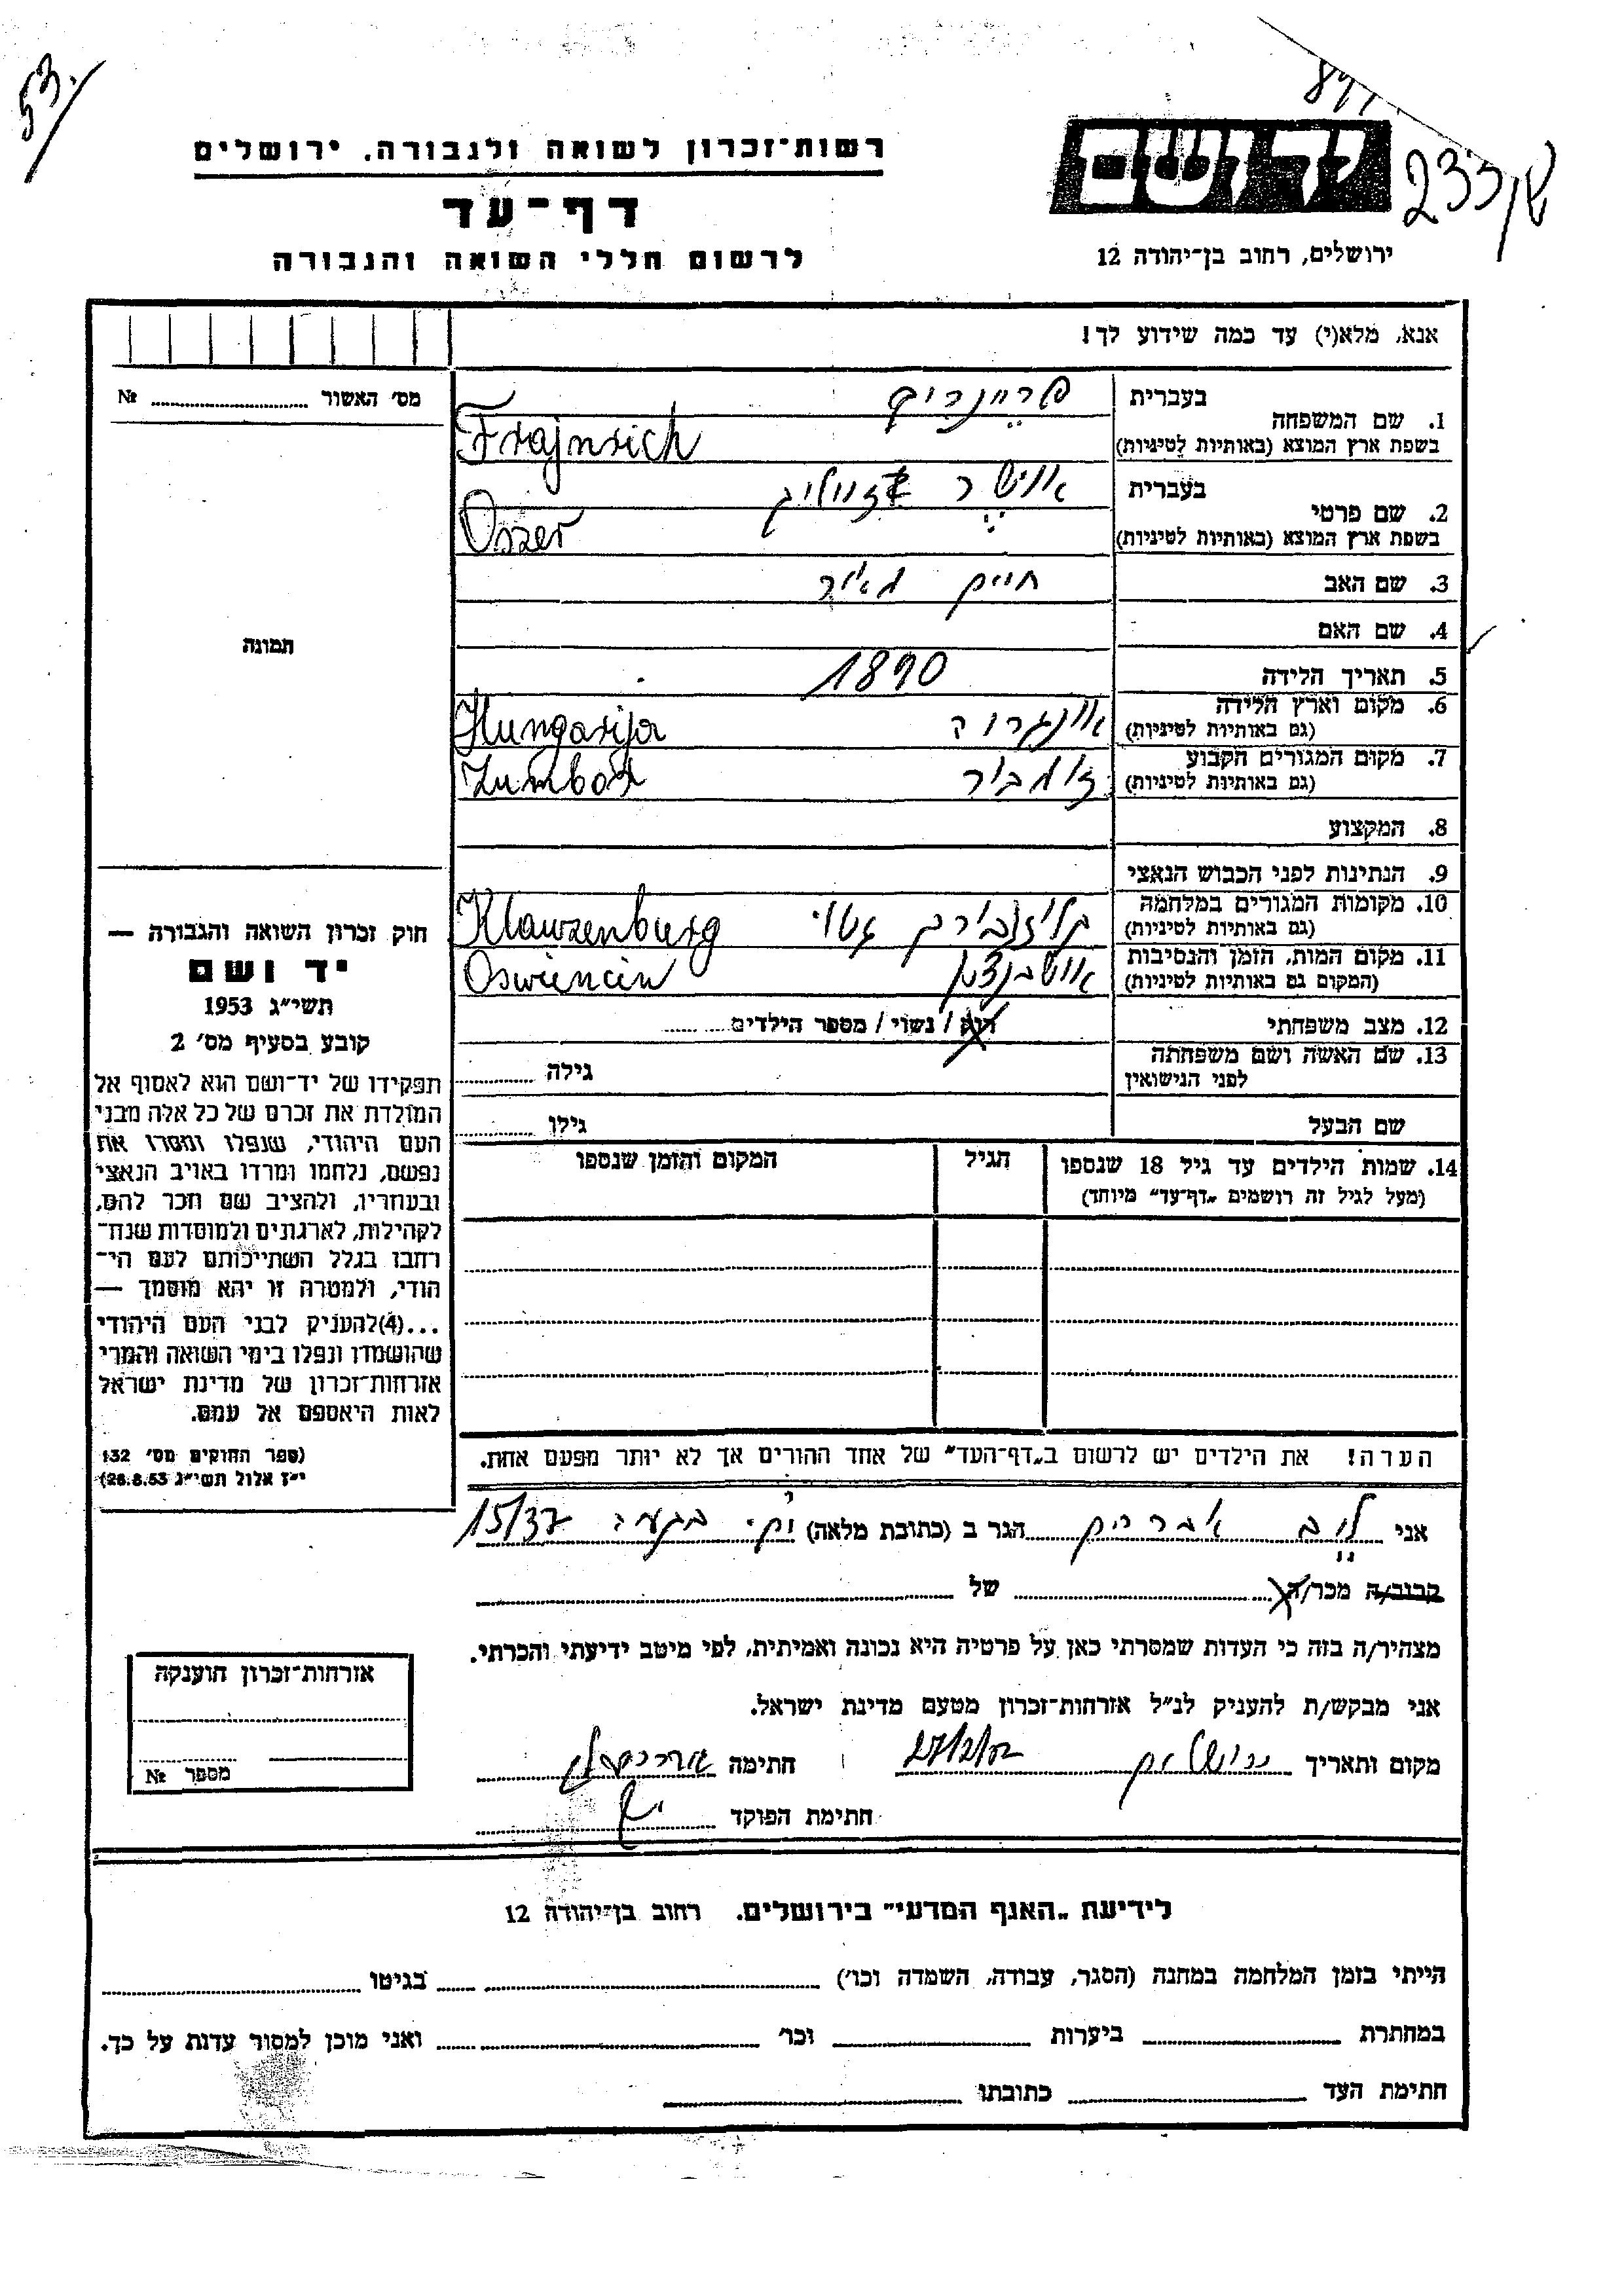 53.
רשות־זכרון לשואה ולגבורה, ירושלים
דף־עד
לרשום חללי השואה והגבורה
ידושם
233
ירושלים, רחוב בן־יהודה 12
אנא, מלא(י) עד כמה שידוע לך!
מס' האשור № 
תמונה
1. שם המשפחה בעברית
בשפת ארץ המוצא (באותיות לטיניות)
Frajnrich
2. שם פרטי בעברית אושר זעליג
בשפת ארץ המוצא (באותיות לטיניות)
Oszer
3. שם האב חיים מאיר
4. שם האם
5. תאריך הלידה 1890
6. מקום וארץ הלידה אונגריה
(גם באותיות לטיניות) Hungarija
7. מקום המגורים הקבוע זומבור
(גם באותיות לטיניות) Zumbor
8. המקצוע
9. הנתינות לפני הכבוש הנאצי
10. מקומות המגורים במלחמה גטו
(גם באותיות לטיניות) Klauzenburg
11. מקום המות, הזמן והנסיבות
(המקום גם באותיות לטיניות) Oswiencin
12. מצב משפחתי רוק / נשוי / מספר הילדים
13. שם האשה ושם משפחתה גילה
לפני הנישואין
שם הבעל גילו
14. שמות הילדים עד גיל 18 שנספו הגיל המקום והזמן שנספו
(מעל לגיל זה רושמים „דף־עד" מיוחד)
הערה! את הילדים יש לרשום ב„דף־העד" של אחד ההורים אך לא יותר מפעם אחת.
חוק זכרון השואה והגבורה —
יד ושם
תשי״ג 1953
קובע בסעיף מס' 2
תפקידו של יד־ושם הוא לאסוף אל
המולדת את זכרם של כל אלה מבני
העם היהודי, שנפלו ומסרו את
נפשם, נלחמו ומרדו באויב הנאצי
ובעוזריו, ולהציב שם וזכר להם,
לקהילות, לארגונים ולמוסדות שנח־
רבו בגלל השתייכותם לעם הי־
הודי, ולמטרה זו יהא מוסמך —
...(4)להעניק לבני העם היהודי
שהושמדו ונפלו בימי השואה והמרי
אזרחות־זכרון של מדינת ישראל
לאות היאספם אל עמם.
(ספר החוקים מס' 132
י״ז אלול תשי״ג 28.8.53)
אני לוב אברהם הגר ב (כתובת מלאה) 15/37
קרוב/ה מכר/ה של
מצהיר/ה בזה כי העדות שמסרתי כאן על פרטיה היא נכונה ואמיתית, לפי מיטב ידיעתי והכרתי.
אני מבקש/ת להעניק לנ״ל אזרחות־זכרון מטעם מדינת ישראל.
מקום ותאריך ירושלים חתימה
חתימת הפוקד
אזרחות־זכרון הוענקה
מספר №
לידיעת „האגף המדעי" בירושלים. רחוב בן־יהודה 12
הייתי בזמן המלחמה במחנה (הסגר, עבודה, השמדה וכו') בגיטו
במחתרת ביערות וכו' ואני מוכן למסור עדות על כך.
חתימת העד כתובתו